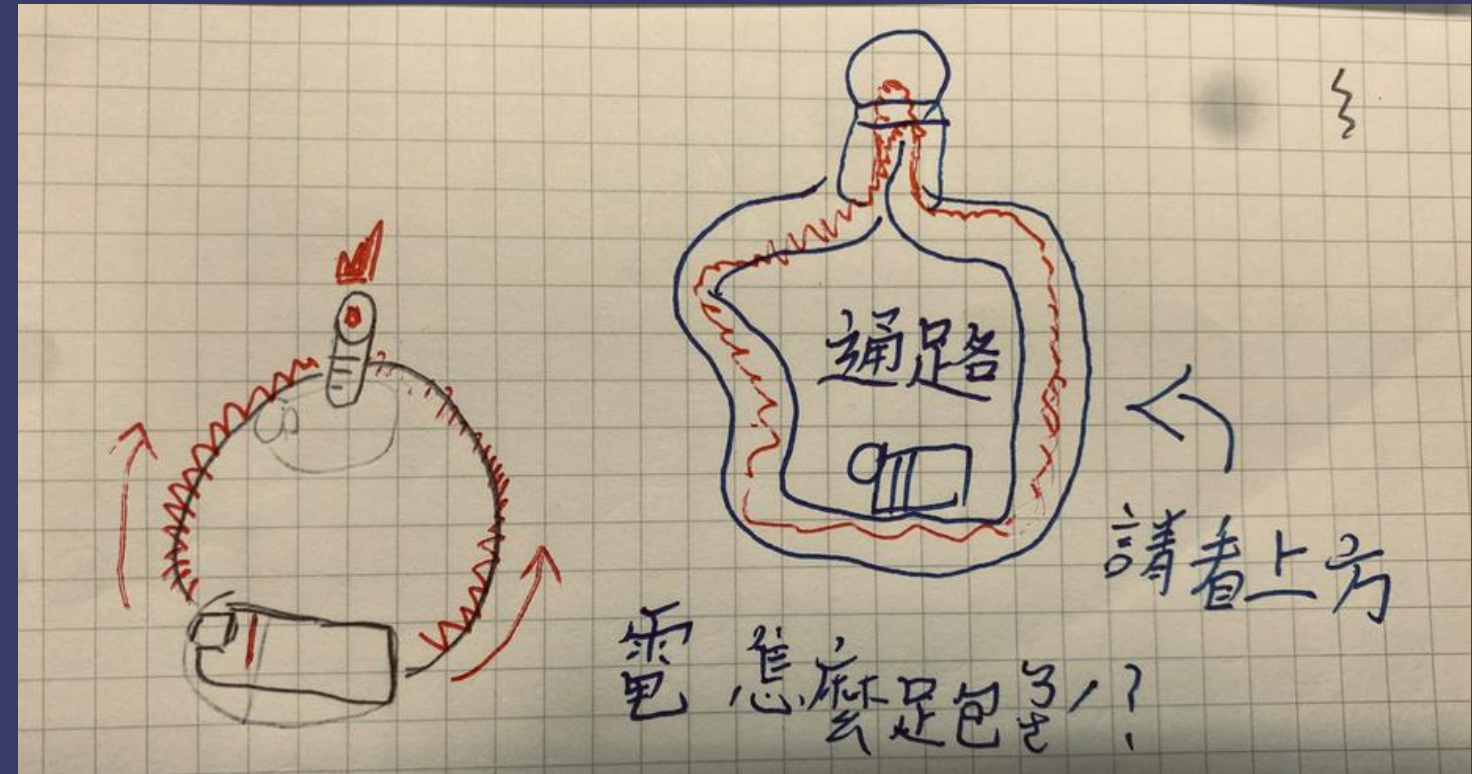 通路
請看上方
電怎麼跑?